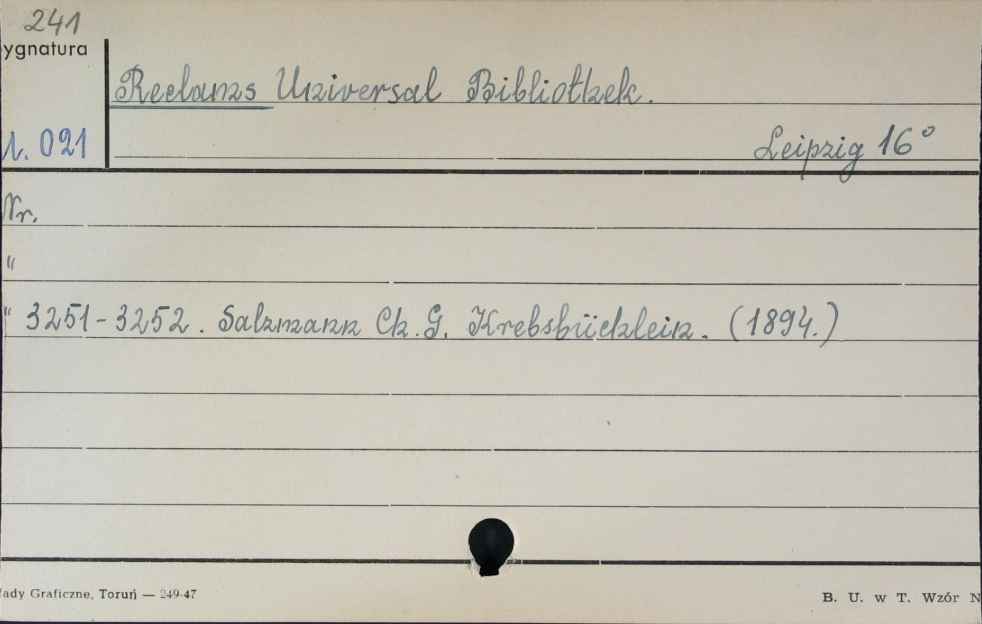 241
ygnatura
Reclams Universal Bibliothek.
1. 021
Leipzig 16°
Nr.
"
" 3251-3252. Salzmann Ch. G. Krebsbüchlein. (1894.)
łady Graficzne, Toruń — 249-47
B. U. w T. Wzór N